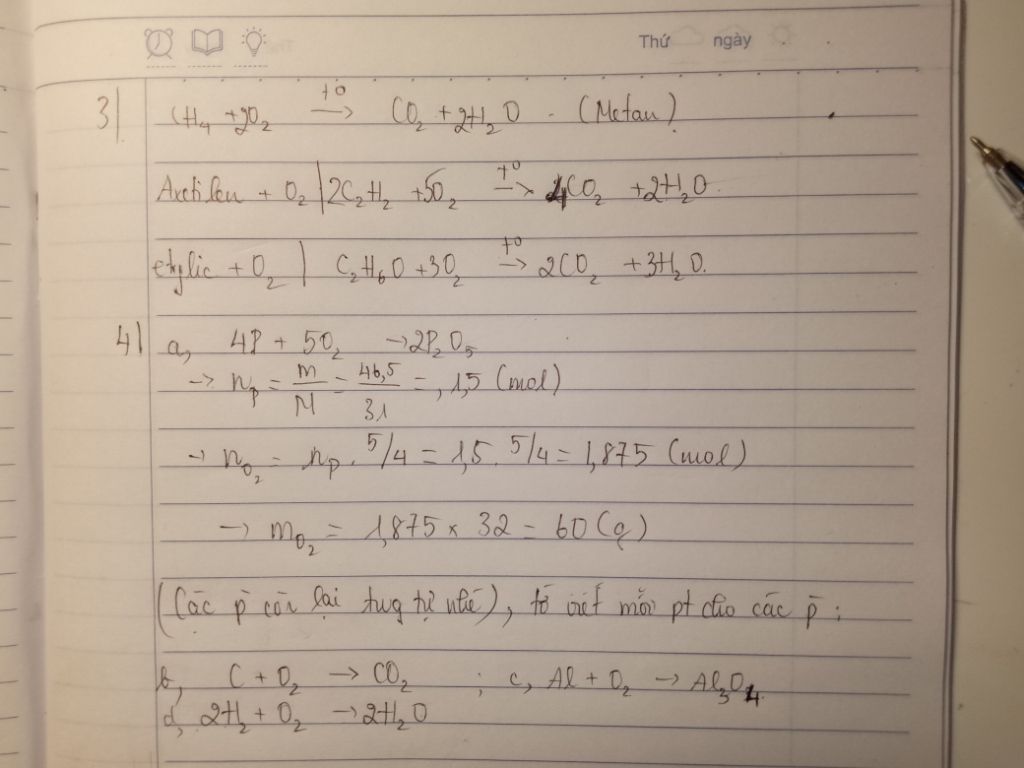 Thứ ngày
3| CH4 + 2O2 t° → CO2 + 2H2O - (Metan)
Axetilen + O2 | 2C2H2 + 5O2 t° → 4CO2 + 2H2O
etylic + O2 | C2H6O + 3O2 t° → 2CO2 + 3H2O.
4| a, 4P + 5O2 → 2P2O5
→ nP = m/M = 46,5/31 = 1,5 (mol)
→ nO2 = nP . 5/4 = 1,5 . 5/4 = 1,875 (mol)
→ mO2 = 1,875 x 32 = 60 (g)
(Các p còn lại tưg tự nhé), tớ viết mỗi pt cho các p :
b, C + O2 → CO2 ; c, Al + O2 → Al3O4
d, 2H2 + O2 → 2H2O